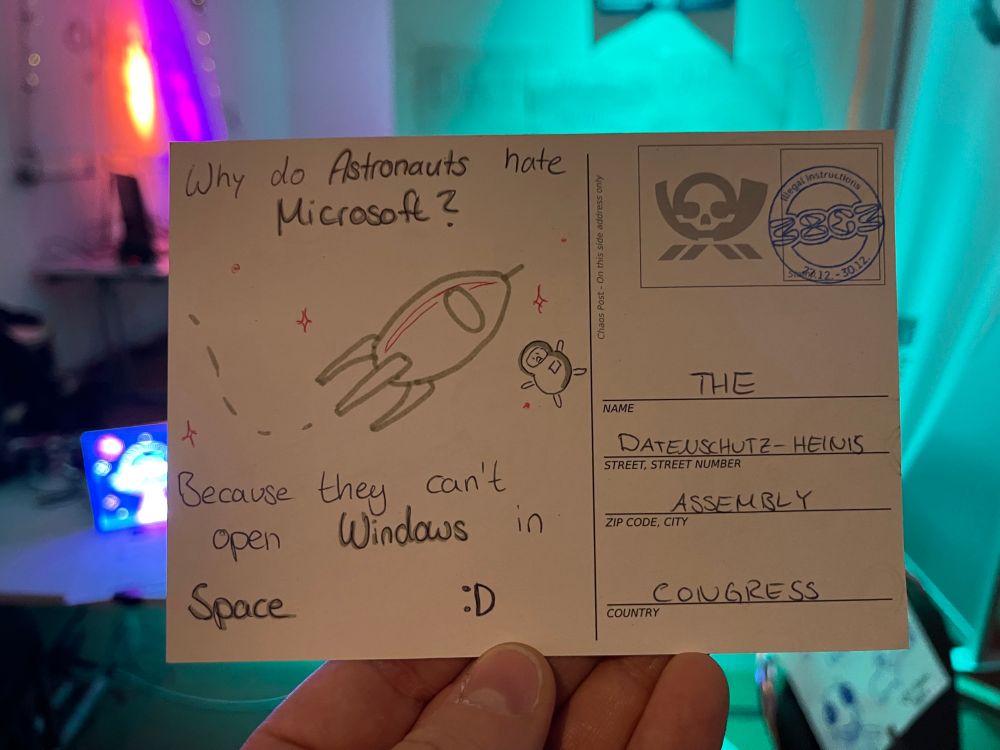 Why do Astronauts hate
Microsoft?
Because they can't
open Windows in
Space :D
Chaos Post - On this side address only
Illegal Instructions
38C3
27.12. - 30.12.
THE
NAME
DATENSCHUTZ-HEINIS
STREET, STREET NUMBER
ASSEMBLY
ZIP CODE, CITY
CONGRESS
COUNTRY